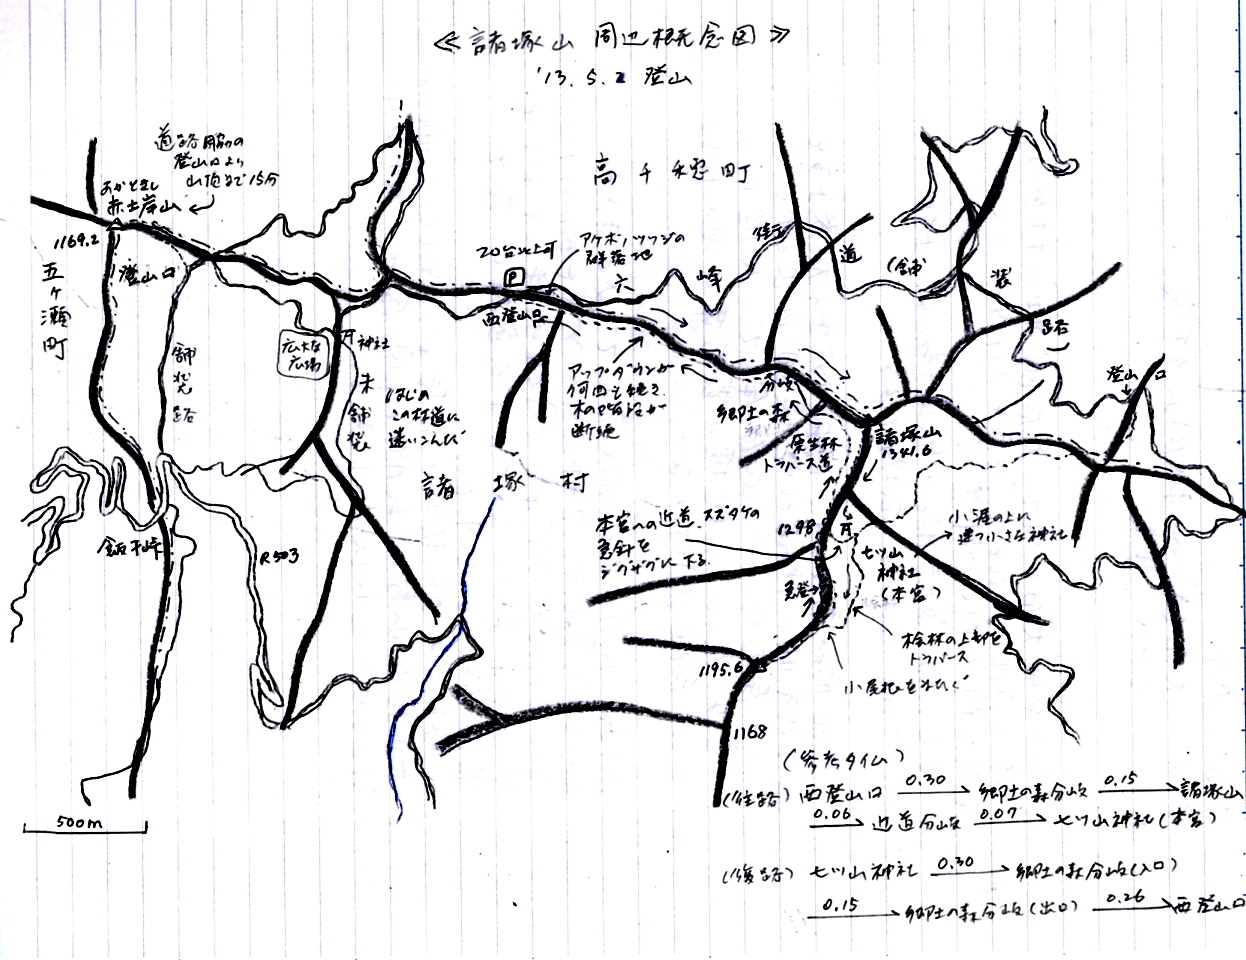 ≪ 諸塚山 周辺概念図 ≫
'13. 5. 2 登山
道路脇の
登山口より
山頂まで15分
あかどぎし
赤土岸山
1169.2
五ヶ瀬町
登山口
舗装路
広大な
広場
神社
未舗装
はじめ
この林道に
迷いこんだ
高千穂町
20台以上可
P
アケボノツツジの
群落地
西登山口
六峰街道(舗装路)
アップダウンが
何回も続き
木の階段が
断続
分岐
郷土の森
原生林
トラバース道
諸塚山
1341.6
登山口
諸塚村
本宮への近道、スズタケの
急斜を
ジグザグに下る
1298
七ツ山
神社
(本宮)
小涯の上に
建つ小さな神社
急登
桧林の上部を
トラバース
小尾根をまたぐ
1195.6
1168
飯干峠
R503
500m
(参考タイム)
(往路) 西登山口 0.30 → 郷土の森分岐 0.15 → 諸塚山
0.06 → 近道分岐 0.07 → 七ツ山神社(本宮)
(復路) 七ツ山神社 0.30 → 郷土の森分岐(入口)
0.15 → 郷土の森分岐(出口) 0.26 → 西登山口